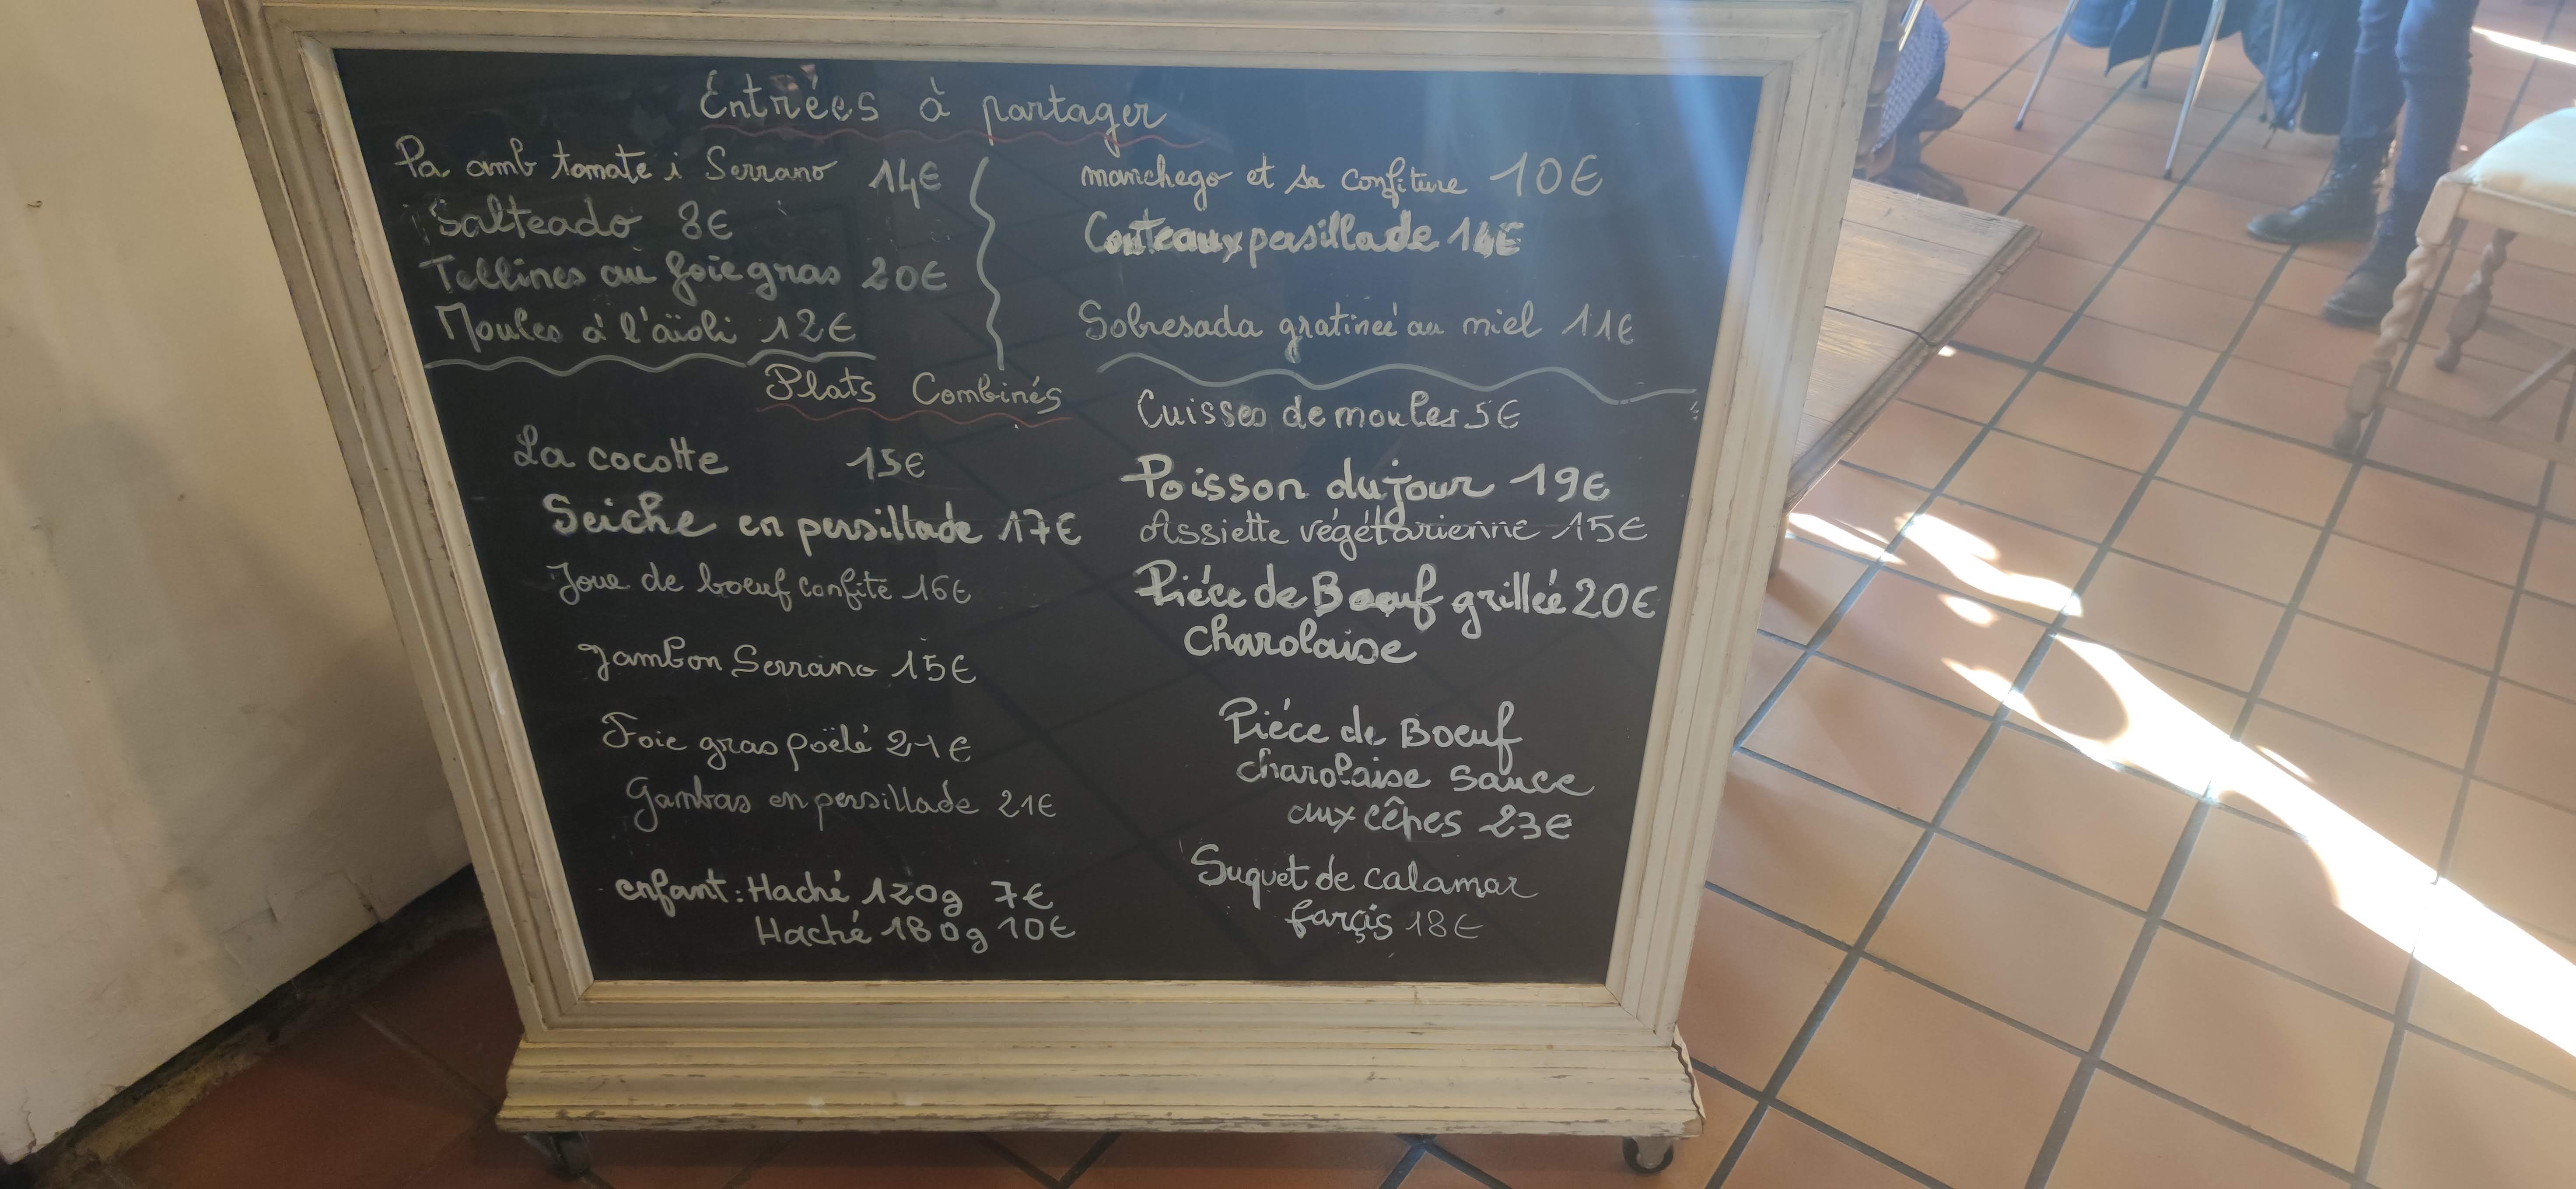 Entrées à partager
Pa amb tomate i Serrano 14€
Salteado 8€
Tellines au foie gras 20€
Moules à l'aïoli 12€
manchego et sa confiture 10€
Couteaux persillade 14€
Sobresada gratineé au miel 11€
Plats Combinés
La cocotte 15€
Seiche en persillade 17€
Joue de boeuf confite 16€
Jambon Serrano 15€
Foie gras poëlé 21€
Gambas en persillade 21€
enfant: Haché 120g 7€
Haché 180g 10€
Cuisses de moules 5€
Poisson du jour 19€
Assiette végétarienne 15€
Piéce de Boeuf grillée 20€
charolaise
Piéce de Boeuf
charolaise sauce
aux cêpes 23€
Suquet de calamar
farçis 18€